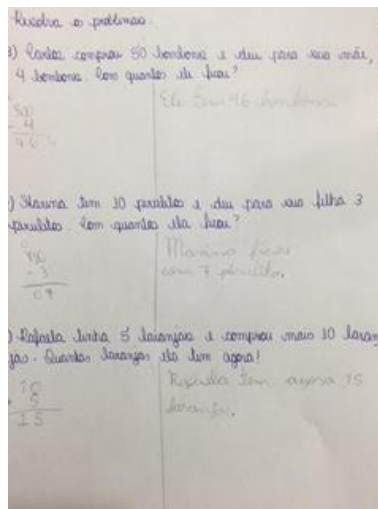 Resolva os problemas.
) Carlos comprou 50 bombons e deu para sua mãe,
4 bombons. Com quantos ele ficou?
Ele tem 46 bombons
- 4
46
) Marina tem 10 pirulitos e deu para sua filha 3
pirulitos. Com quantos ela ficou?
Marina ficou
com 7 pirulitos.
- 3
07
) Rafaela tinha 5 laranjas e comprou mais 10 laran
jas. Quantas laranjas ela tem agora!
Rafaela tem agora 15
laranjas.
10
5
15